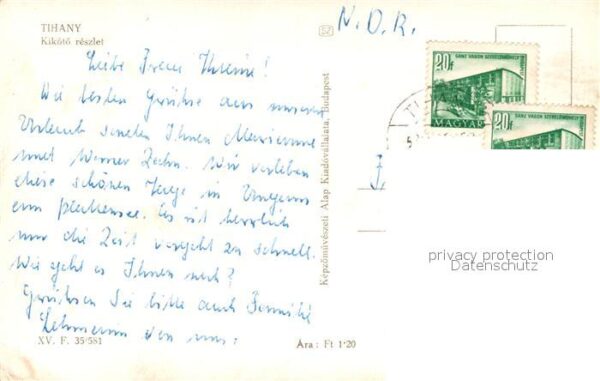 TIHANY
Kikötő részlet
Liebe Frau Thieme!
Die besten Grüße aus unserem
Urlaub senden Ihnen Marianne
und Werner Zahn. Wir verleben
diese schönen Tage in Ungarn
am Plattensee. Es ist herrlich
nur die Zeit vergeht zu schnell.
Wie geht es Ihnen noch?
Grüßen Sie bitte auch Familie
Lehmann von uns.
XV. F. 35/581
Ára: Ft 1·20
Képzőművészeti Alap Kiadóvállalata, Budapest
N.D.R.
20f
GANZ VAGON SZERELŐMŰHELY
MAGYAR
20f
GANZ VAGON SZERELŐMŰHELY
privacy protection
Datenschutz